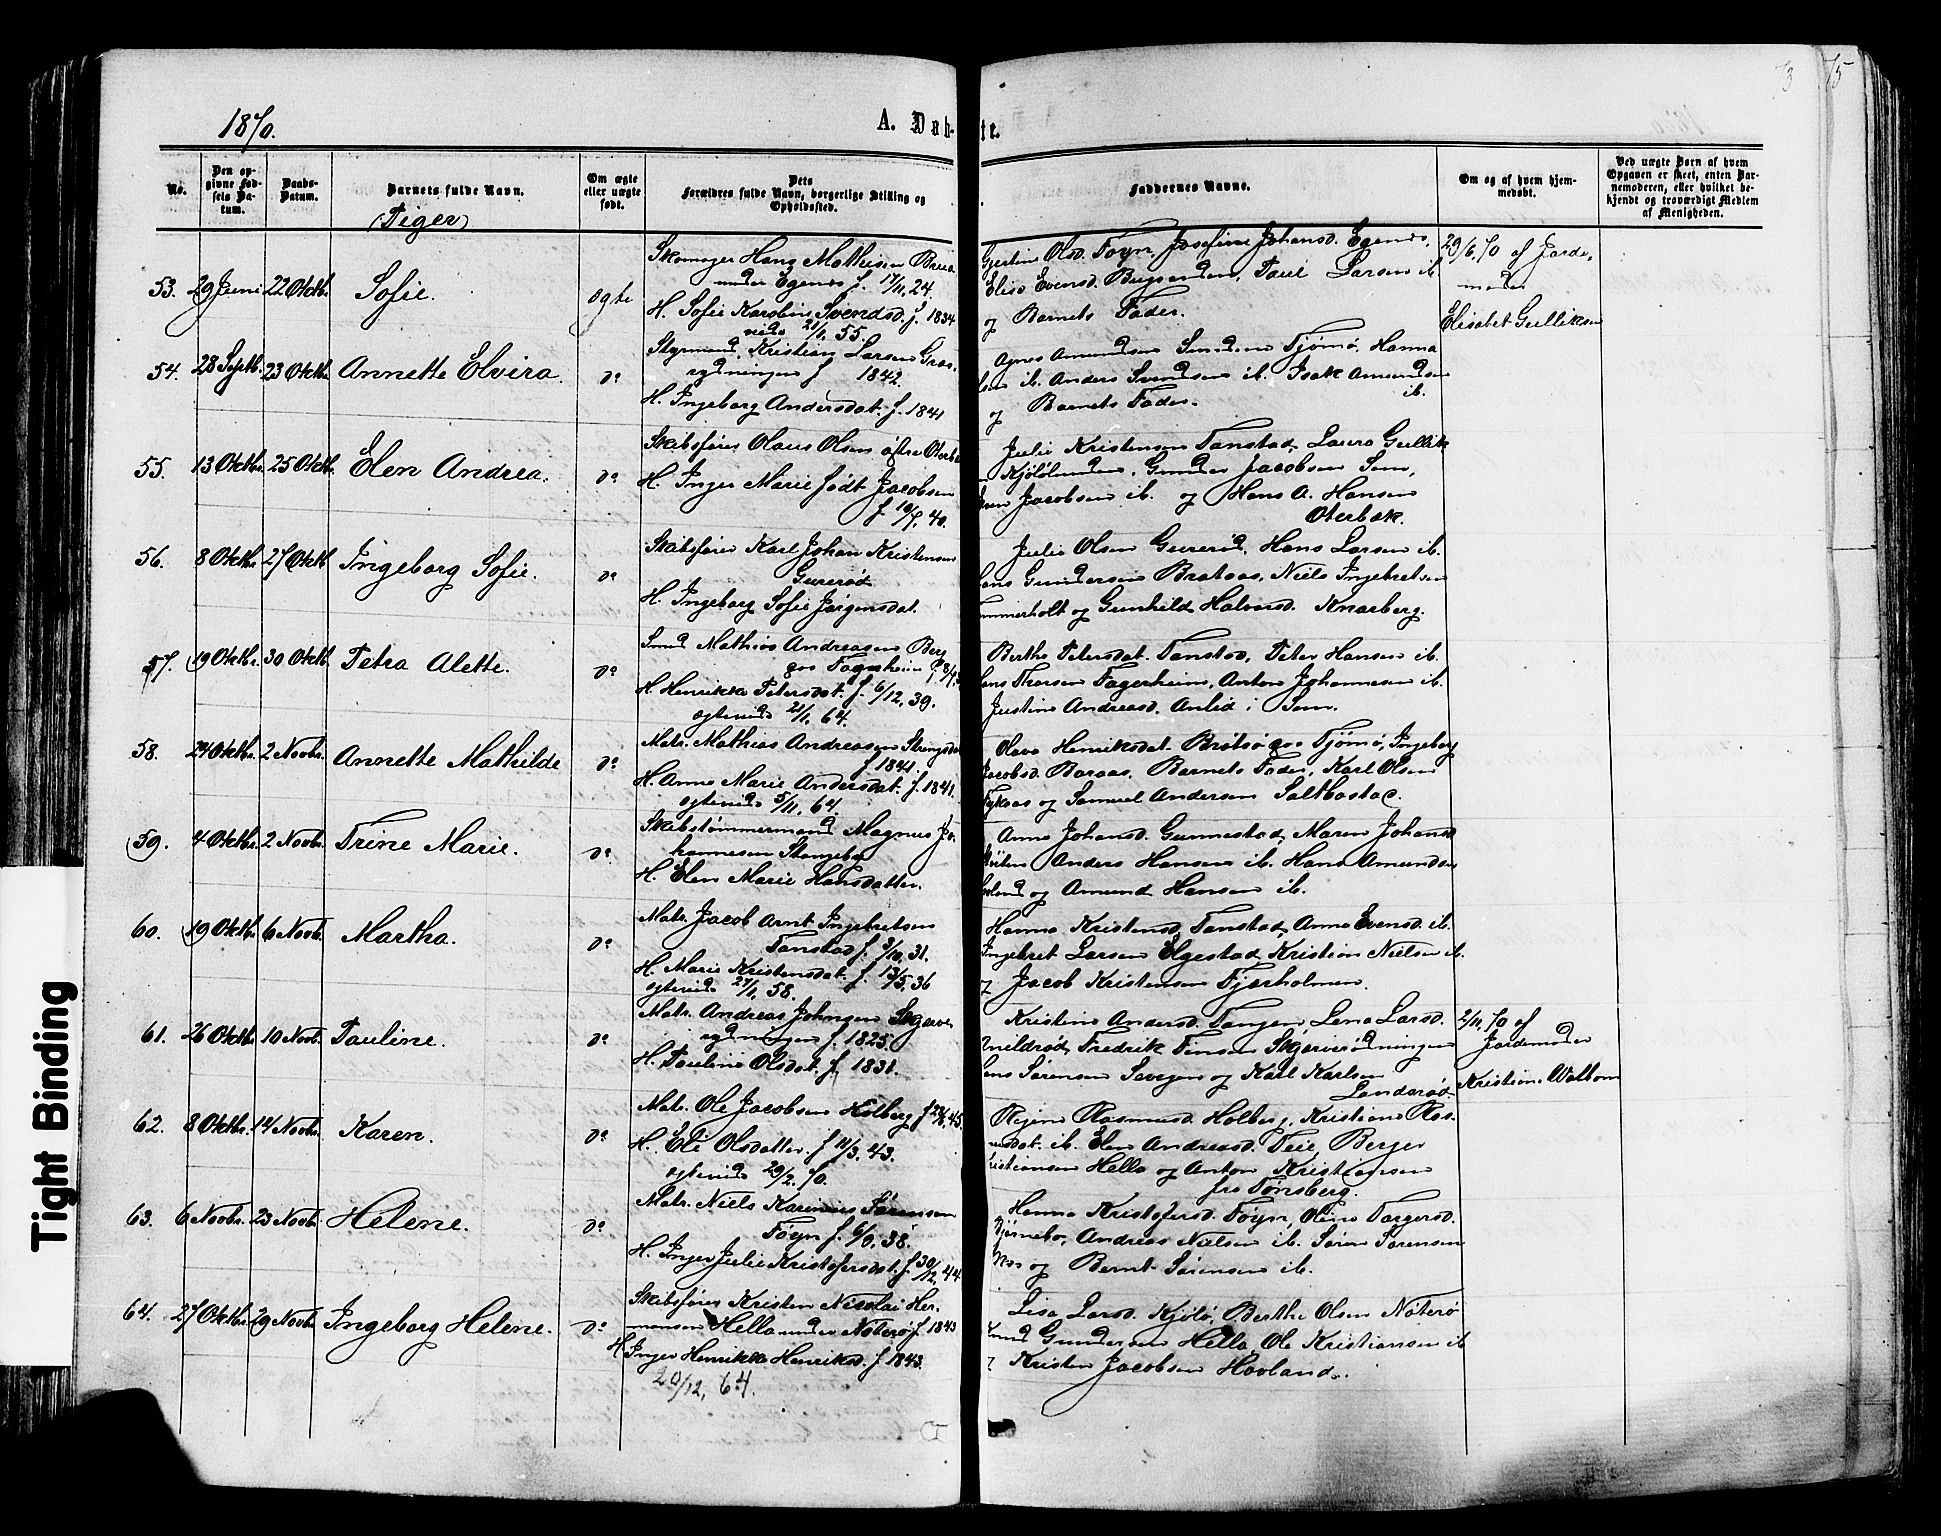 73 75
1870.
A. Døb-
te.
No.
Den op-
givne Fød-
sels Da-
tum.
Daabs-
Datum.
Barnets fulde Navn.
(Piger)
Om ægte
eller uægte
født.
Dets
Forældres fulde Navn, borgerlige Stilling og
Opholdssted.
Faddernes Navne.
Om og af hvem hjem-
medøbt.
Ved uægte Børn af hvem
Opgaven er skeet, enten Bar-
nemoderen, eller hvilket be-
kjendt og troværdigt Medlem
af Menigheden.
53. 29 Juni 22 Oktb. Sofie. ægte
Skomager Hans Mathisen
under Egenes f. 17/11, 24.
H. Sofie Karoline Svendsd. f. 1834
viede 21/1, 55.
Olsd. Føyn, Josefine Johansd. Egenes,
Elise Evensd. Paul Larsen ib.
og Barnets Fader.
29/6 70 af Jorde-
moder
Elisabet Gulliksen
54. 28 Septb. 23 Oktb. Annette Elvira. do
Styrmand Kristian Larsen Græs-
rødningen f. 1842.
H. Ingeborg Andersdat. f. 1841
Agnes Amundsen Tjømø, Hanna
ib. Anders Svendsen ib. Isak Amundsen
ib.
og Barnets Fader.
55. 13 Oktb. 25 Oktb. Elen Andrea. do
Skibsfører Olaus Olsen østre
H. Inger Marie født Jacobsen
f. 19/7, 40.
Julie Kristensen Tanstad, Laura Gullik
Gunder Jacobsen Sem,
Jacobsen ib. og Hans A. Hansen
Oterbæk.
56. 8 Oktb. 27 Oktb Ingeborg Sofie. do
Skibsfører Karl Johan Kristensen
Gurerød
H. Ingeborg Sofie Jørgensdat.
Julie Olsen Gurerød, Hans Larsen ib.
Gundersen Brataas, Niels Ingebretsen
og Gunhild Halvorsd. Knarberg.
57. 19 Oktb. 30 Oktb. Petra Alette. do
Smed Mathias Andreasen Berg
H. Henrikke Petersdat. f. 6/12, 39.
ægteviede 21/1, 64.
Berthe Petersdat. Tanstad, Peter Hansen ib.
Thorsen Fagerheim, Anton Johannesen ib.
Justine Andreasd. Aulid i Sem.
58. 24 Oktb. 2 Novbr. Annette Mathilde do
Matr. Mathias Andreasen
f. 1841.
H. Anne Marie Andersdat. f. 1841.
ægteviede 5/11, 64.
Olava Henriksdat. Brøtsø paa Tjømø, Ingeborg
Jacobsd. Baraas, Barnets Fader, Karl Olsen
og Samuel Andersen
59. 4 Oktb. 2 Novbr. Trine Marie. do
Skibstømmermand Magnus Jo-
hannesen Stangeby
H. Elen Marie Hansdatter.
Anne Johansd. Gunnestad, Maren Johansd
Anders Hansen ib. Hans Amundsen
og Amund Hansen ib.
60. 19 Oktb. 6 Novb. Martha. do
Matr. Jacob Arnt Ingebretsen
Tanstad f. 3/10, 31.
H. Marie Kristensdat. f. 13/5, 36
ægteviede 27/1, 58.
Hanna Kristensd. Tanstad, Anna Evensd. ib.
Ingebret Larsen Elgestad, Kristian Nielsen ib.
Jacob Kristensen Fjærholmen.
61. 26 Oktb. 10 Novb. Pauline. do
Matr. Andreas Johnsen Skjerve
rødningen f. 1825.
H. Pauline Olsdat. f. 1831.
Kristine Andersd. Tangen, Lena Larsd.
Fredrik Finsen Skjerverødningen
Sørensen og Karl Karlsen
Landerød.
2/11, 70 af
Jordemoder
Kristine Walbom
62. 8 Oktb. 14 Novb. Karen. do
Matr. Ole Jacobsen Holberg
H. Eli Olsdatter f. 11/3, 43.
ægteviede 29/2, 70.
Regine Rasmusd. Holberg, Kristiane Ras-
ib. Elen Andreasd. Teie, Berger
Kristiansen Hella og Anton Kristiansen
fra Tønsberg.
63. 6 Novbr. 23 Novb. Helene. do
Matr. Niels Karinius Sørensen
Føyn f. 38.
H. Inger Julie Kristofersdat. f. 30/12, 44
Hanna Kristofersd. Føyn, Oline Torgersd.
Bjørnebo, Andreas Nielsen ib. Søren Sørensen
og Bernt Sørensen ib.
64. 27 Oktb. 29 Novb. Ingeborg Helene. do
Skibsfører Kristen Nicolai Her-
mansen Hella under Nøterø f. 1843
H. Inger Henrikke Henriksd. f. 1843.
20/12, 64.
Lisa Larsd. Kjøle, Berthe Olsen Nøterø
Knud Gundersen Hella, Ole Kristiansen ib
Kristen Jacobsen Hovland.
Tight Binding